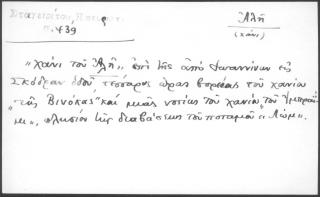 Σταγειρίτου, Ἠπειρωτ.
σ. 439
Ἀλῆ
(χάνι)
"Χάνι τοῦ Ἀλῆ,, ἐπὶ τῆς ἀπὸ Ἰωαννίνων εἰς
Σκόδραν ὁδοῦ, τέσσαρας ὥρας βορείως τοῦ χανίου
"τῆς Βινόκας" καὶ μιᾶς νοτίας τοῦ χανίου "τοῦ Ἰμπραΐ-
μι", πλησίον τῆς διαβάσεως τοῦ ποταμοῦ "Λώμ".